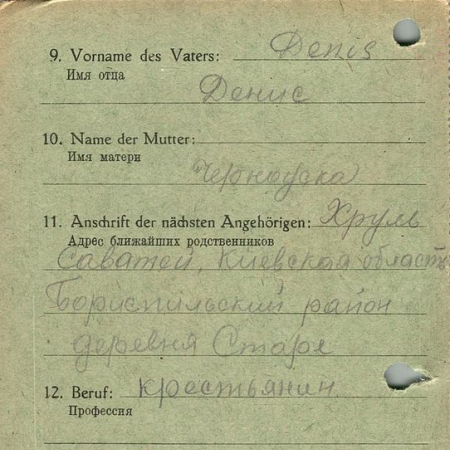 9. Vorname des Vaters: Денis
Имя отца
Денис
10. Name der Mutter:
Имя матери
11. Anschrift der nächsten Angehörigen: Хруль
Адрес ближайших родственников
Саватей, Киевская область
Бориспильский район
деревня Старе
12. Beruf: крестьянин
Профессия